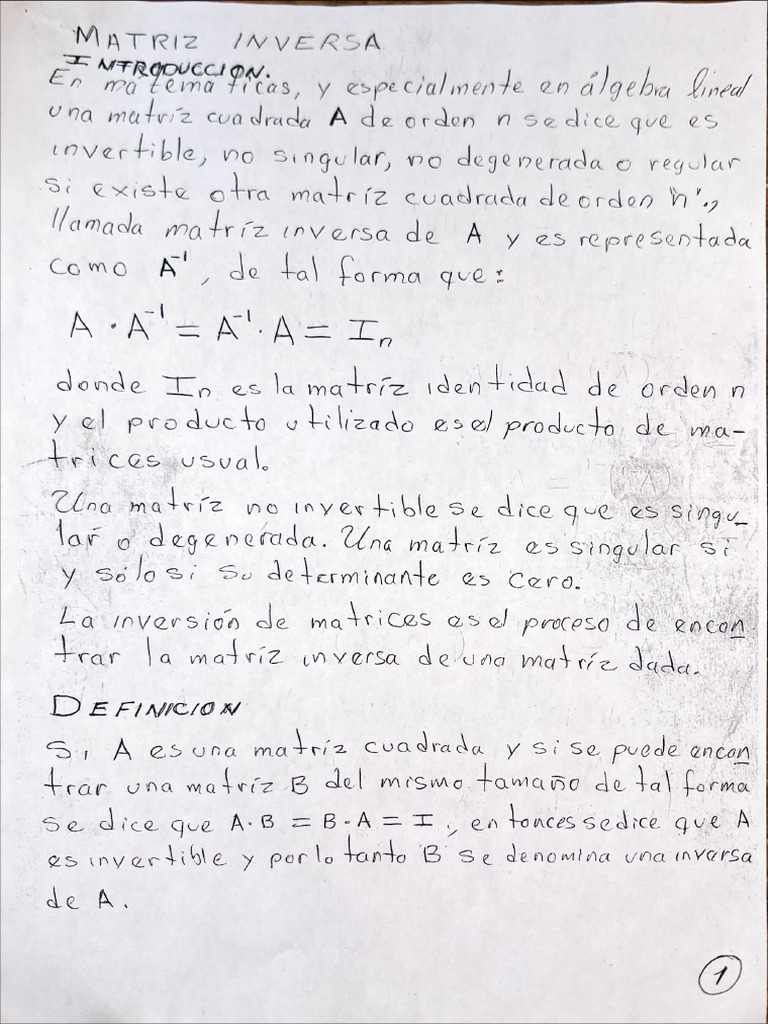 MATRIZ INVERSA
INTRODUCCION.
En matemáticas, y especialmente en álgebra lineal
una matríz cuadrada A de orden n se dice que es
invertible, no singular, no degenerada o regular
si existe otra matríz cuadrada de orden "n",
llamada matríz inversa de A y es representada
como A⁻¹, de tal forma que:
A · A⁻¹ = A⁻¹ · A = In
donde In es la matríz identidad de orden n
y el producto utilizado es el producto de ma-
trices usual.
Una matríz no invertible se dice que es singu_
lar o degenerada. Una matríz es singular si
y sólo si su determinante es cero.
La inversión de matrices es el proceso de encon
trar la matríz inversa de una matríz dada.
DEFINICION
Si A es una matríz cuadrada y si se puede encon
trar una matríz B del mismo tamaño de tal forma
se dice que A·B = B·A = I, entonces se dice que A
es invertible y por lo tanto B se denomina una inversa
de A.
1